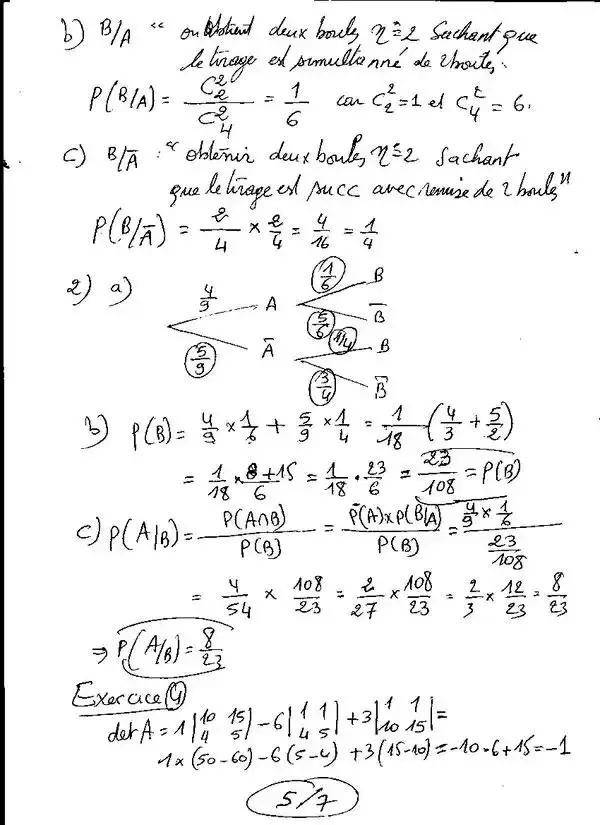 b) B/A " on obtient deux boules n°=2 Sachant que
le tirage est simultanné de 2 boules.
P(B/A) = C²₂ / C²₄ = 1/6 car C²₂ = 1 et C²₄ = 6.
c) B/Ā : " obtenir deux boules n°=2 Sachant
que le tirage est succ avec remise de 2 boules"
P(B/Ā) = 2/4 × 2/4 = 4/16 = 1/4
2) a)
4/9 A 1/6 B
5/6 B̄
5/9 Ā 1/4 B
3/4 B̄
b) P(B) = 4/9 × 1/6 + 5/9 × 1/4 = 1/18 (4/3 + 5/2)
= 1/18 × 8+15/6 = 1/18 · 23/6 = 23/108 = P(B)
c) P(A/B) = P(A∩B)/P(B) = P(A)×P(B/A)/P(B) = 4/9 × 1/6 / 23/108
= 4/54 × 108/23 = 2/27 × 108/23 = 2/3 × 12/23 = 8/23
⇒ P(A/B) = 8/23
Exercice 4
det A = 1 |10 15 / 4 5| - 6 |1 1 / 4 5| + 3 |1 1 / 10 15| =
1 × (50 - 60) - 6 (5 - 4) + 3 (15 - 10) = -10 - 6 + 15 = -1
5/7